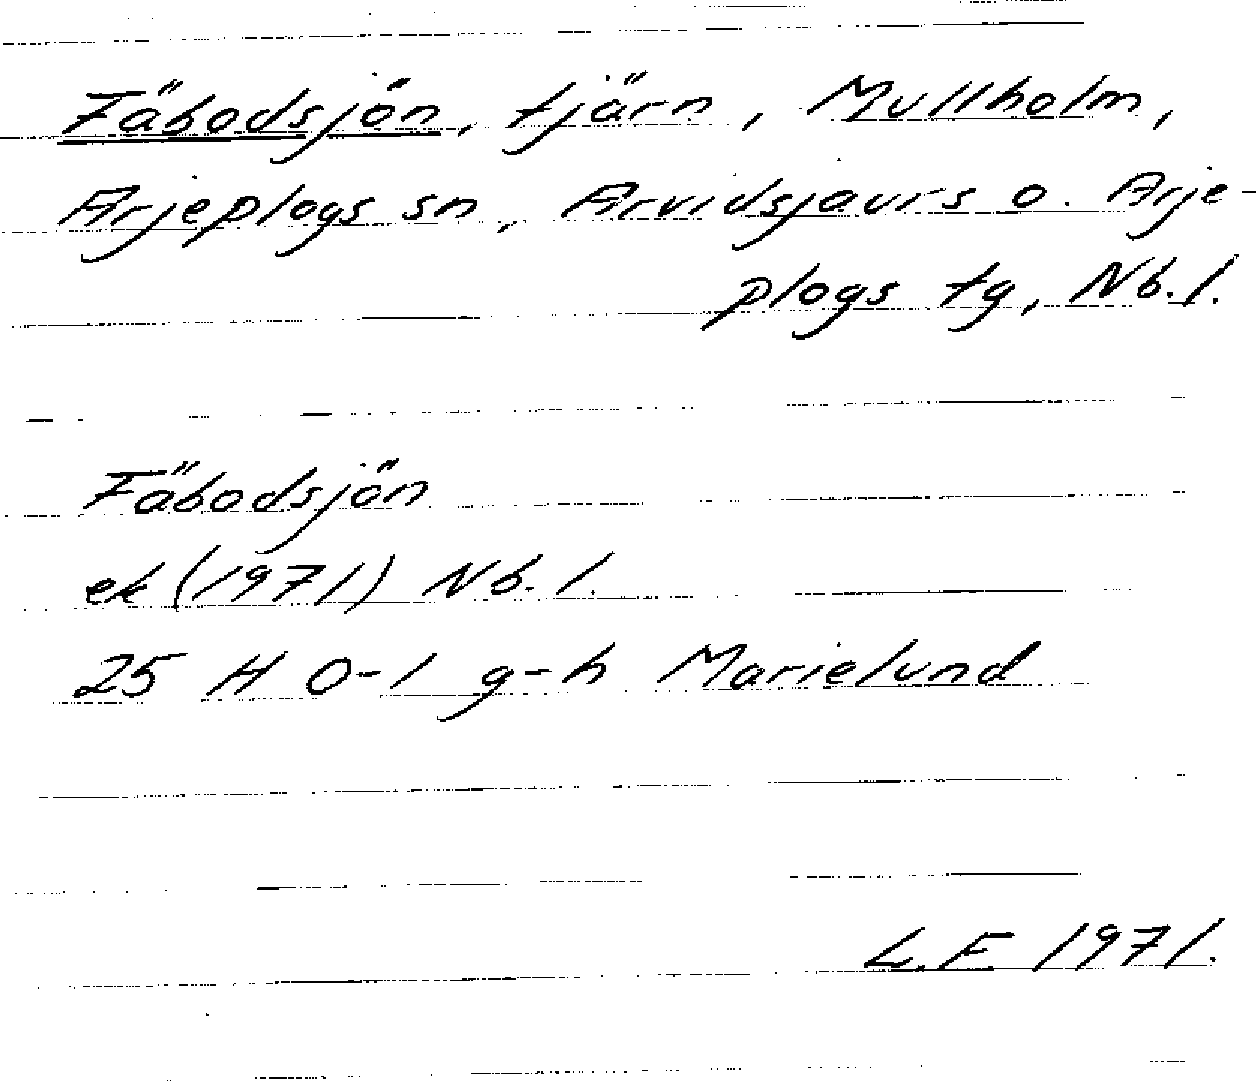 Fäbodsjön, tjärn, Mullholm,
Arjeplogs sn, Arvidsjaurs o. Arje-
plogs tg, Nb.l.
Fäbodsjön
ek (1971) Nb.l.
25 H 0-1 g-h Marielund
L.F. 1971.